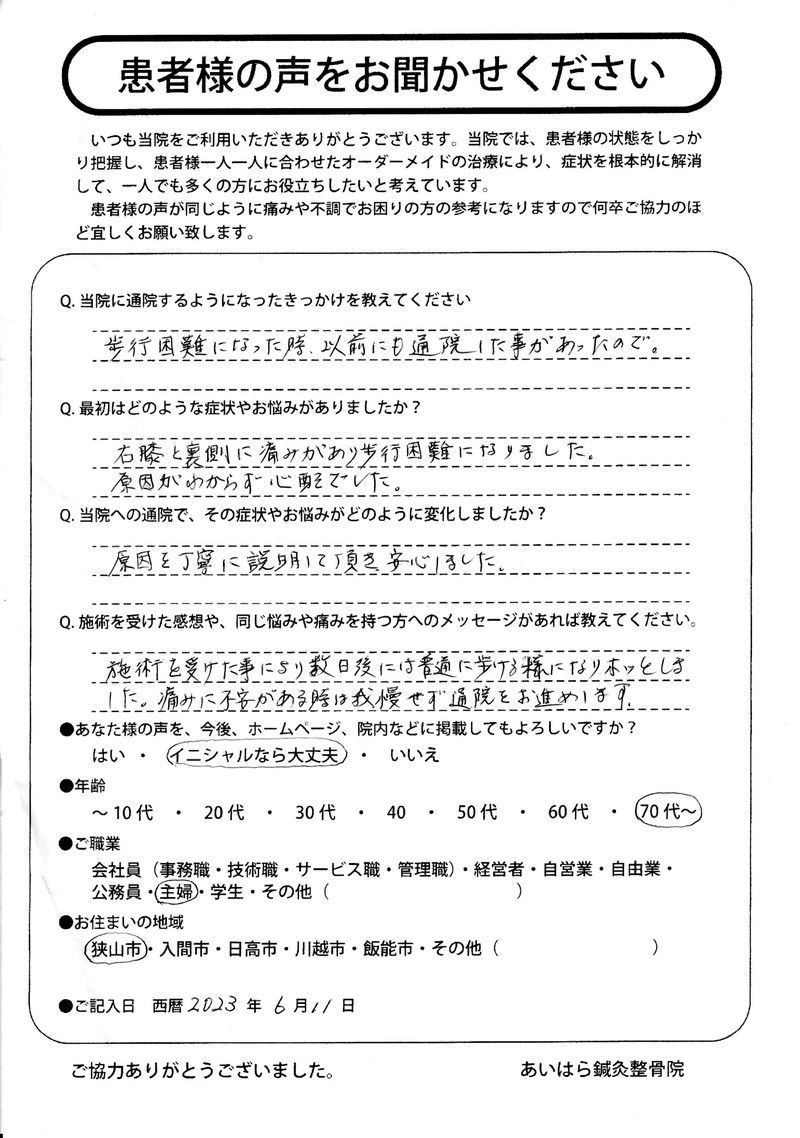 患者様の声をお聞かせください
いつも当院をご利用いただきありがとうございます。当院では、患者様の状態をしっか
り把握し、患者様一人一人に合わせたオーダーメイドの治療により、症状を根本的に解消
して、一人でも多くの方にお役立ちしたいと考えています。
患者様の声が同じように痛みや不調でお困りの方の参考になりますので何卒ご協力のほ
ど宜しくお願い致します。
Q. 当院に通院するようになったきっかけを教えてください
歩行困難になった時、以前にも通院した事があったので。
Q. 最初はどのような症状やお悩みがありましたか？
右膝と裏側に痛みがあり歩行困難になりました。
原因がわからず心配でした。
Q. 当院への通院で、その症状やお悩みがどのように変化しましたか？
原因を丁寧に説明して頂き安心しました。
Q. 施術を受けた感想や、同じ悩みや痛みを持つ方へのメッセージがあれば教えてください。
施術を受けた事により数日後には普通に歩ける様になりホッとしま
した。痛みに不安がある時は我慢せず通院をお進めします。
●あなた様の声を、今後、ホームページ、院内などに掲載してもよろしいですか？
はい ・ イニシャルなら大丈夫 ・ いいえ
●年齢
～10代 ・ 20代 ・ 30代 ・ 40 ・ 50代 ・ 60代 ・ 70代～
●ご職業
会社員（事務職・技術職・サービス職・管理職）・経営者・自営業・自由業・
公務員・主婦・学生・その他（ ）
●お住まいの地域
狭山市・入間市・日高市・川越市・飯能市・その他（ ）
●ご記入日 西暦 2023 年 6 月 11 日
ご協力ありがとうございました。 あいはら鍼灸整骨院